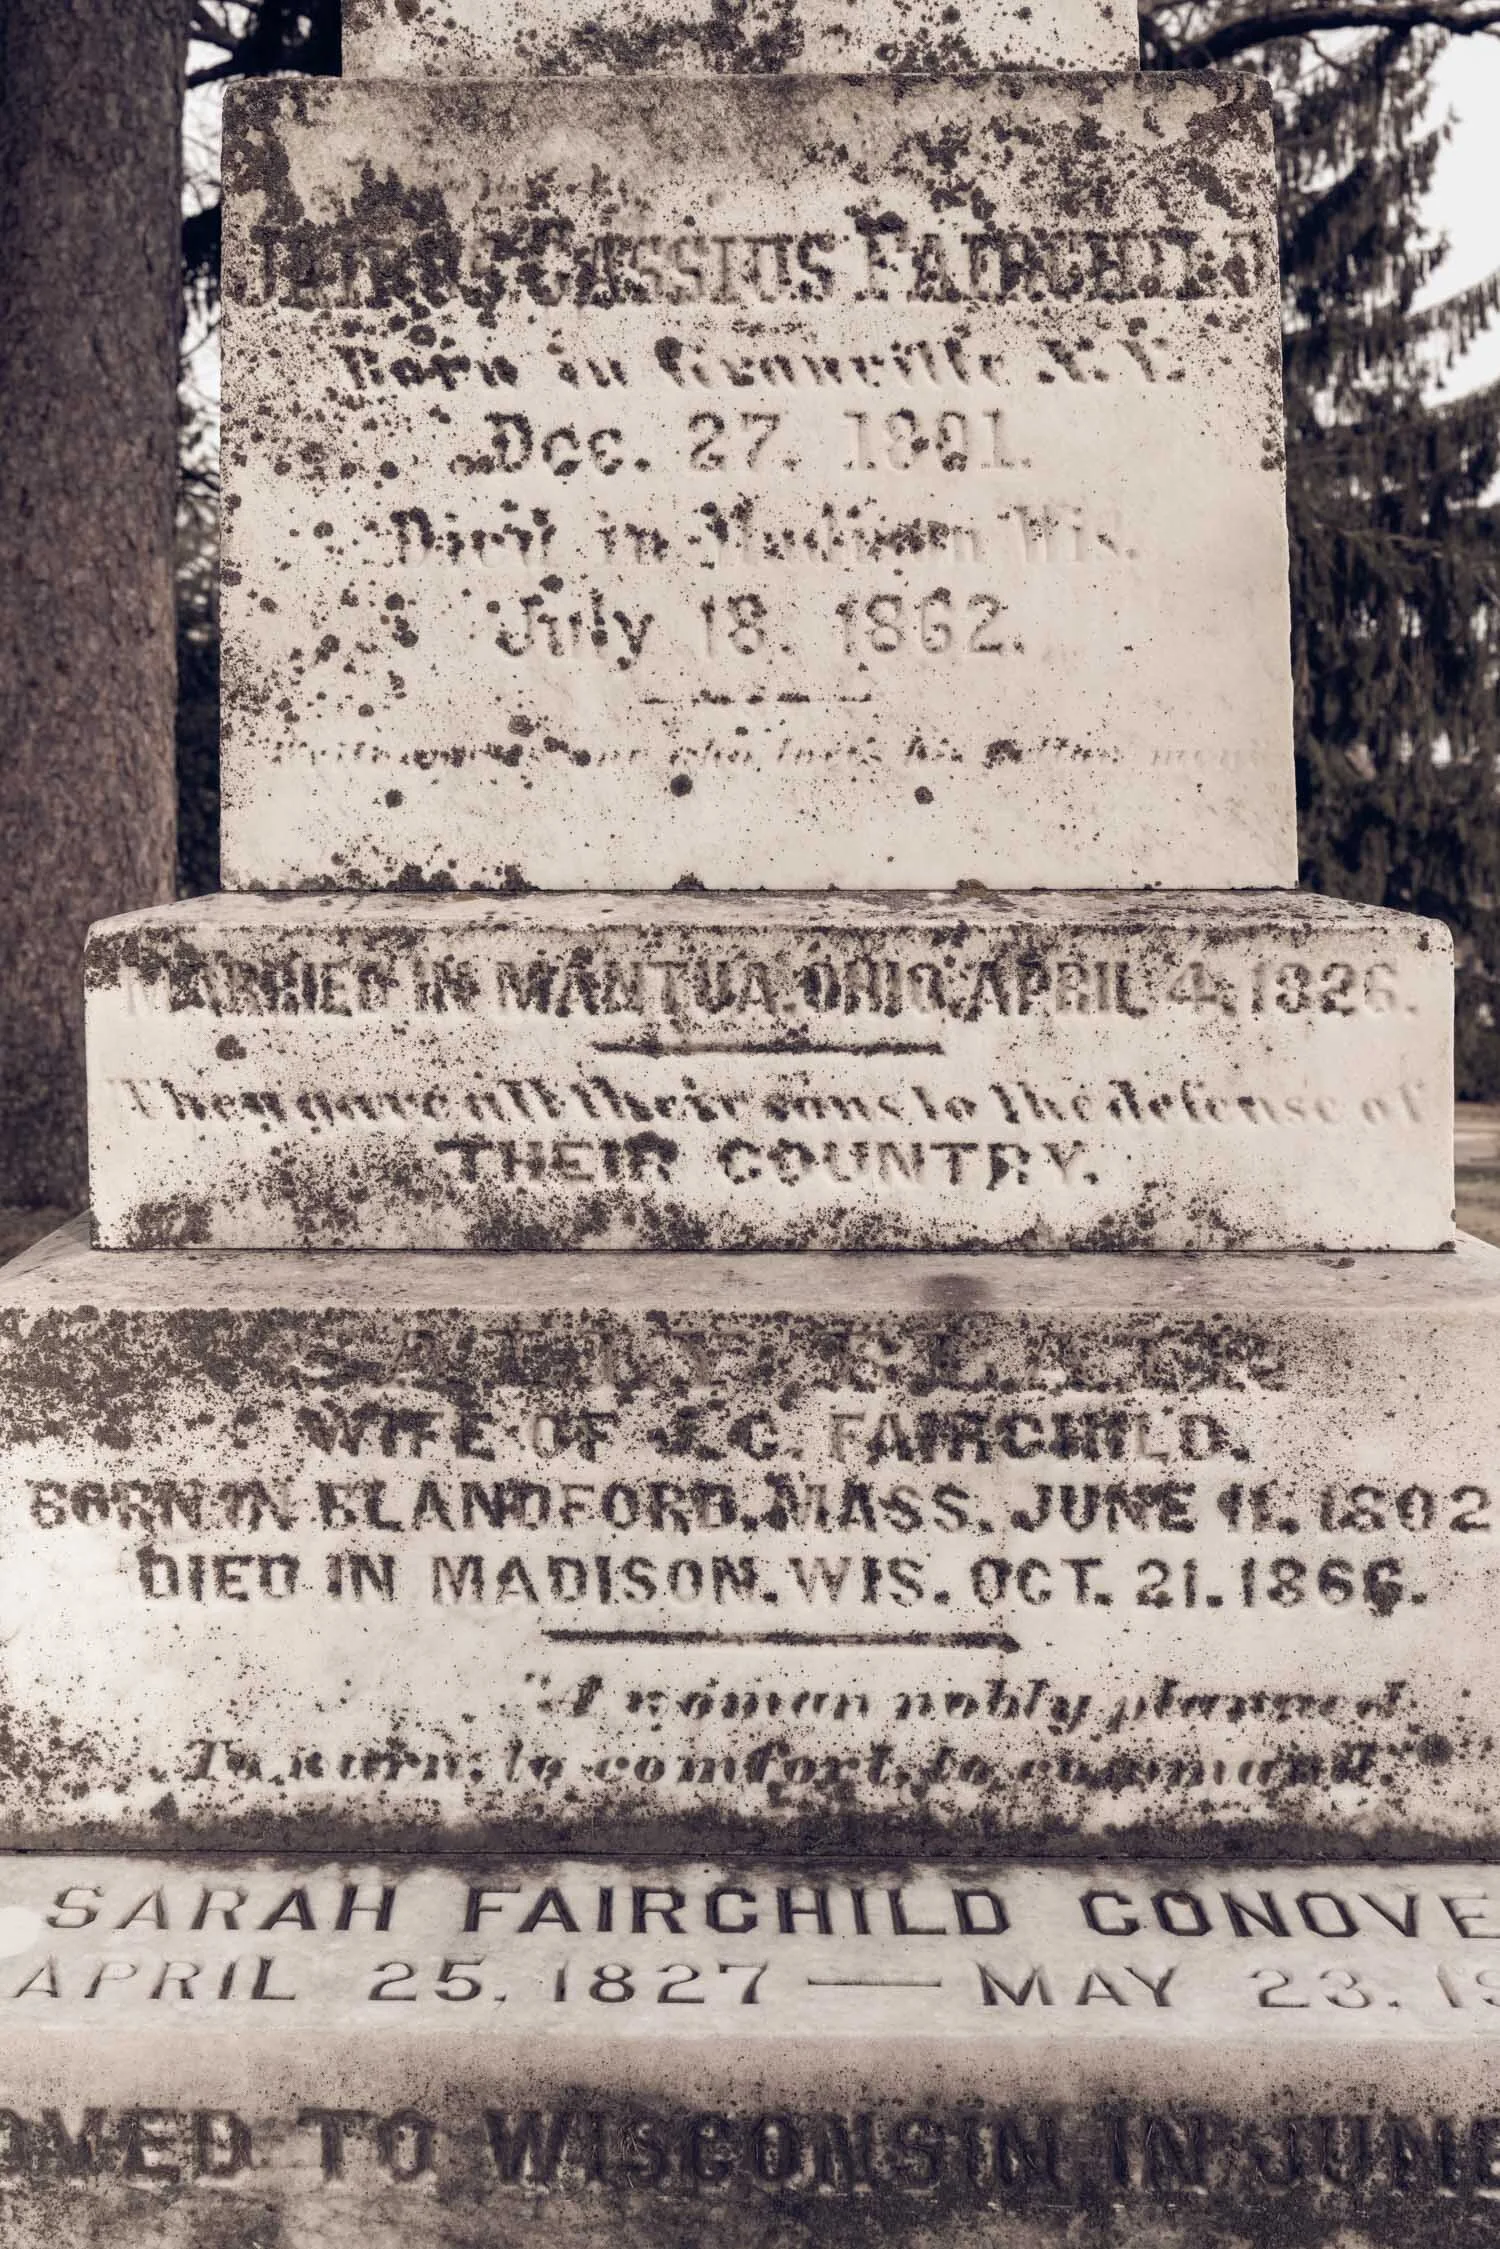 JAIRUS CASSIUS FAIRCHILD
Born in Granville N.Y.
Dec. 27. 1801.
Died in Madison Wis.
July 18. 1862.
one who loves his fellow men
MARRIED IN MANTUA. OHIO, APRIL 4, 1826.
They gave all their sons to the defense of
THEIR COUNTRY.
SALLY BLAIR
WIFE OF J. C. FAIRCHILD.
BORN IN BLANDFORD, MASS. JUNE 11. 1802
DIED IN MADISON. WIS. OCT. 21. 1866.
"A woman nobly planned
To warn, to comfort, to command."
SARAH FAIRCHILD CONOVE
APRIL 25. 1827 — MAY 23. 19
OMED TO WISCONSIN IN JUNE